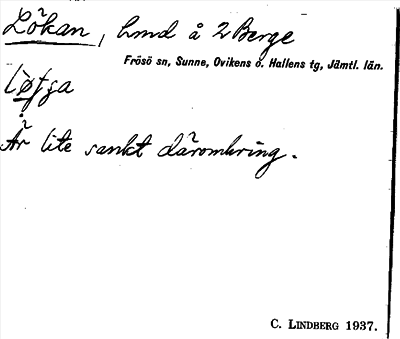 Lökan, hmd å 2 Berge
Frösö sn, Sunne, Ovikens o. Hallens tg, Jämtl. län.
Är lite sankt däromkring.
C. LINDBERG 1937.